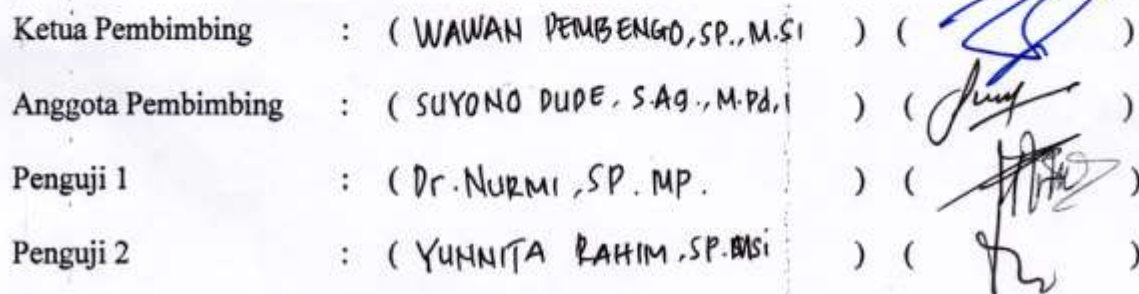 Ketua Pembimbing : ( WAWAN PEMBENGO, SP., M.Si ) ( )
Anggota Pembimbing : ( SUYONO DUDE, S.Ag., M.Pd,i ) ( )
Penguji 1 : ( Dr. NURMI, SP. MP. ) ( )
Penguji 2 : ( YUNNITA RAHIM, SP. MSi ) ( )